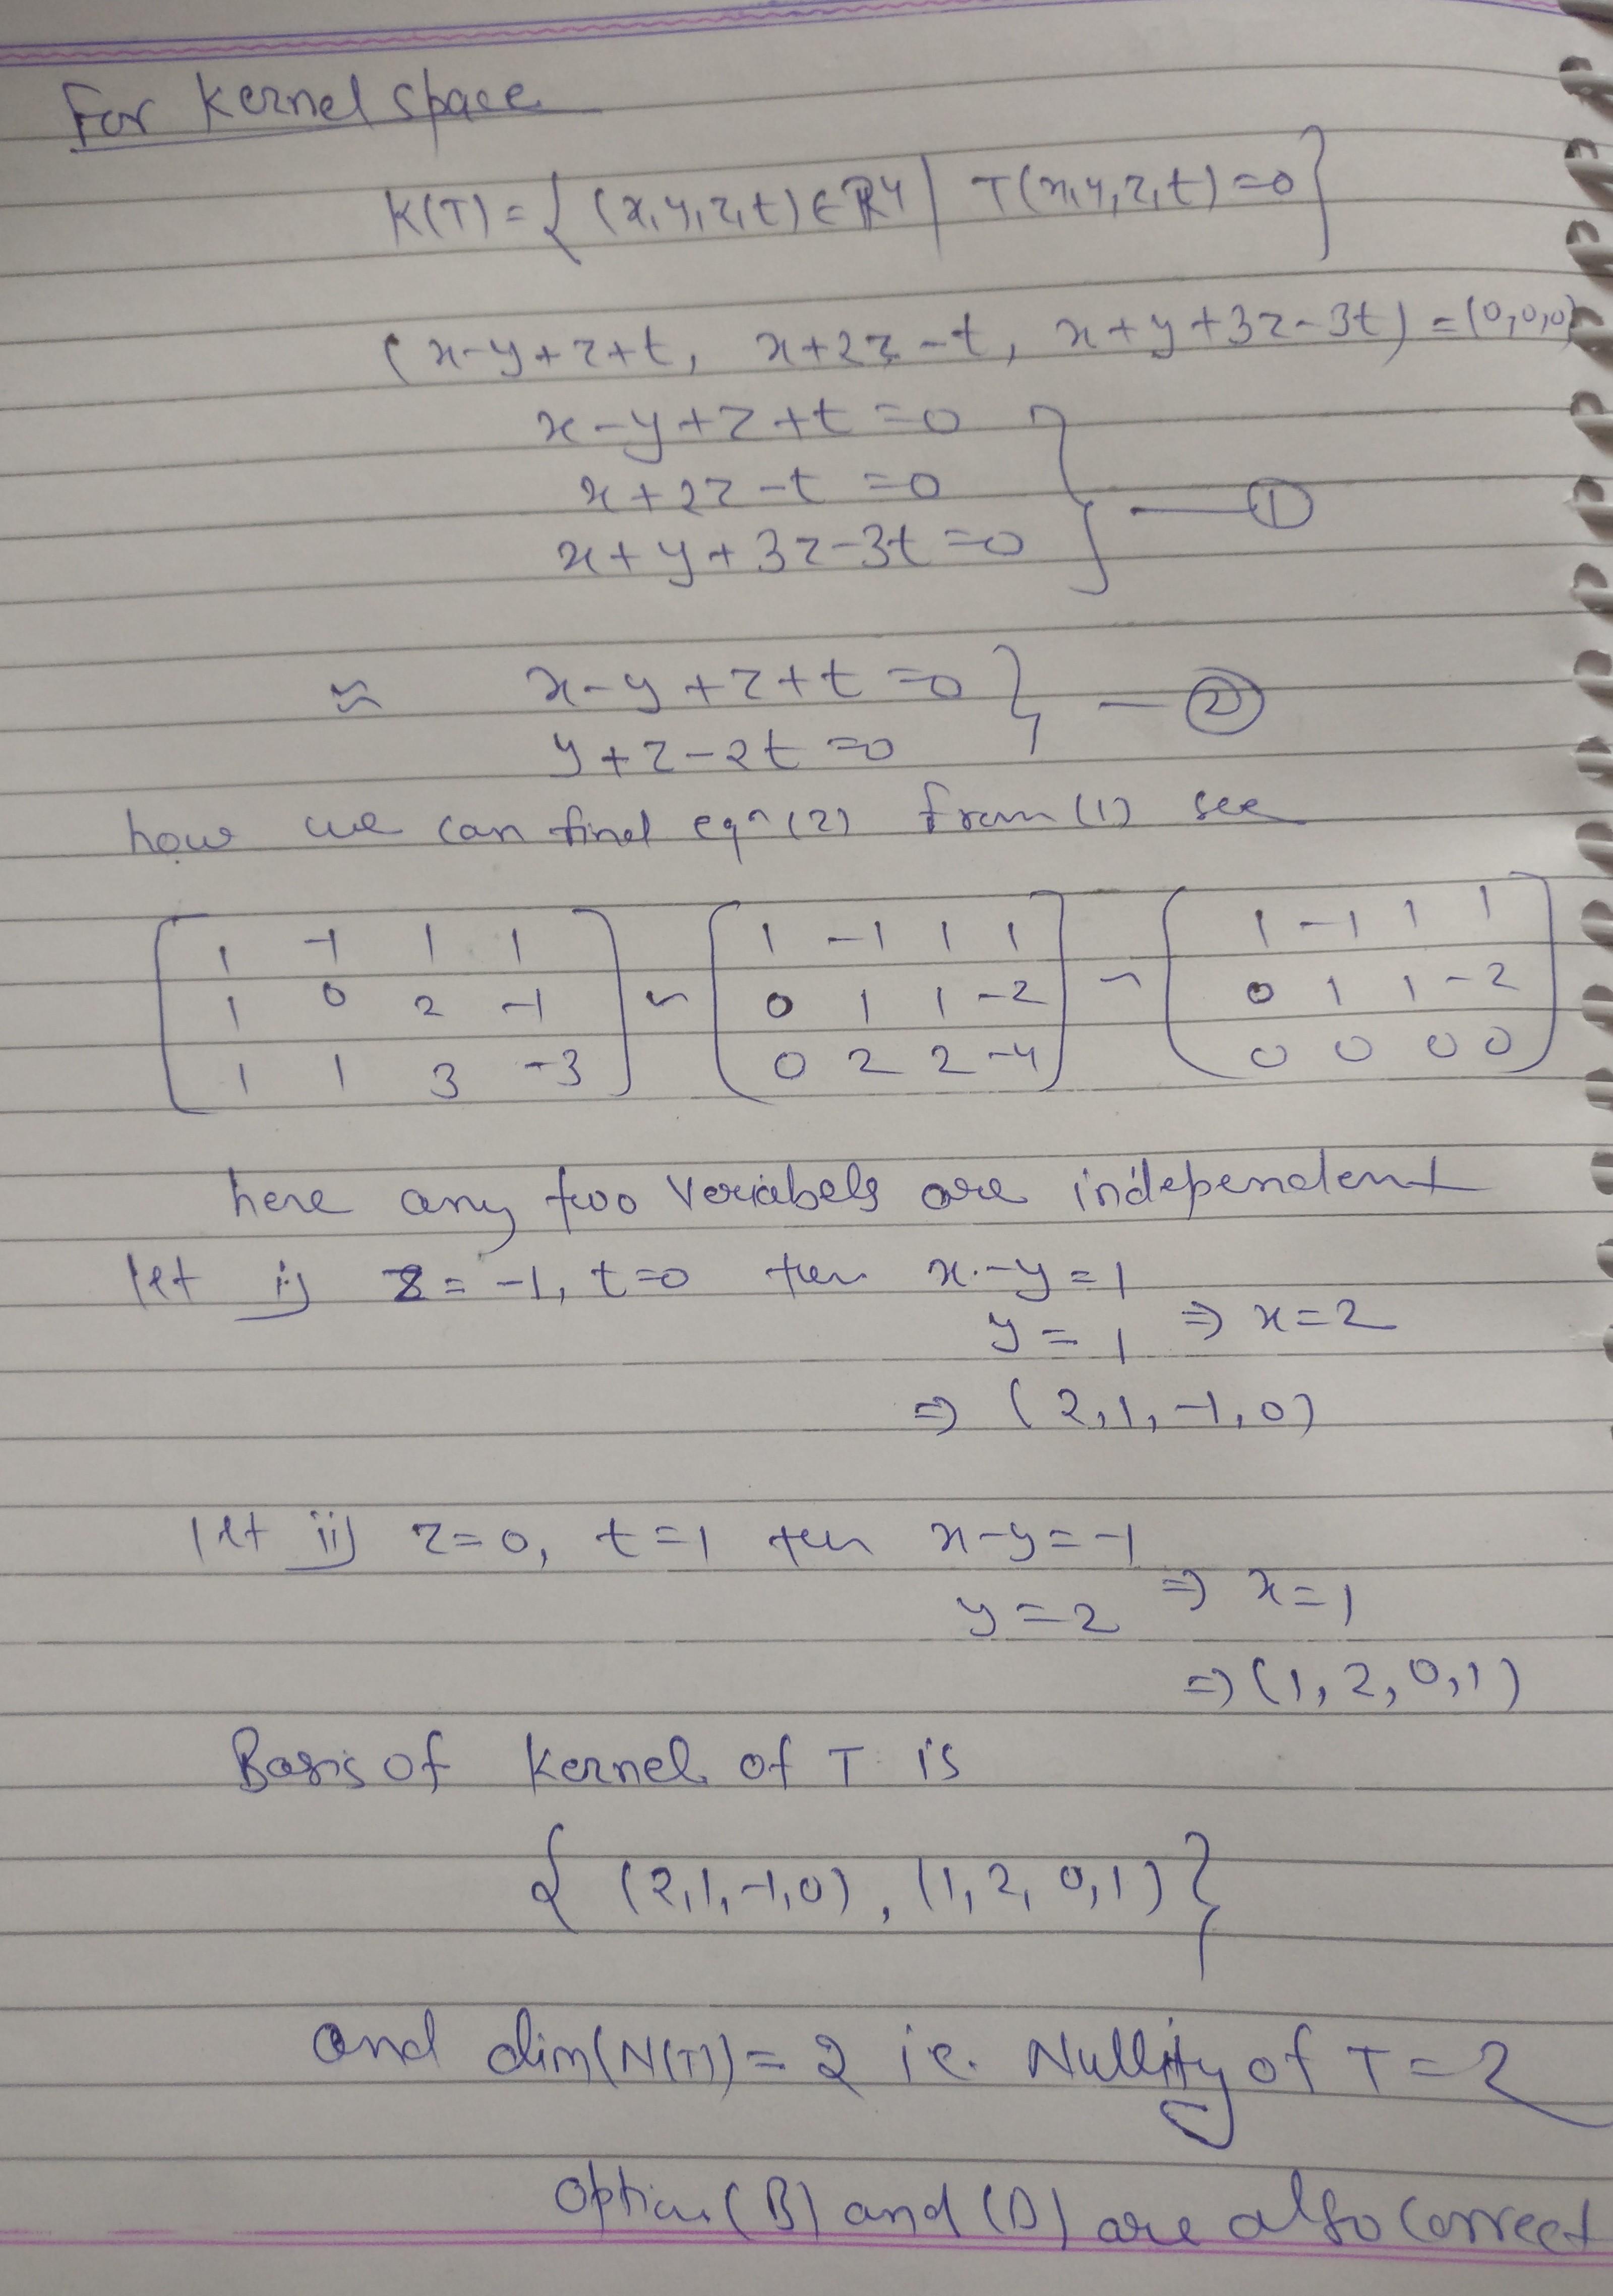 For Kernel space
K(T) = { (x,y,z,t) ∈ R4 | T(x,y,z,t) = 0 }
(x-y+z+t, x+2z-t, x+y+3z-3t) = (0,0,0)
x-y+z+t = 0
x+2z-t = 0
x+y+3z-3t = 0 } — ①
≈ x-y+z+t = 0
y+z-2t = 0 } — ②
how we can find eqn (2) from (1) see
[1 -1 1 1] ~ [1 -1 1 1] ~ [1 -1 1 1]
[1 0 2 -1] [0 1 1 -2] [0 1 1 -2]
[1 1 3 -3] [0 2 2 -4] [0 0 0 0]
here any two Veriabels are independent
let i) z = -1, t=0 then x-y = 1
y = 1 ⇒ x = 2
⇒ (2,1,-1,0)
let ii) z=0, t=1 then x-y = -1
y = 2 ⇒ x = 1
⇒ (1,2,0,1)
Basis of Kernel of T is
{ (2,1,-1,0), (1,2,0,1) }
and dim(N(T)) = 2 i.e. Nullity of T = 2
Option (B) and (D) are also correct